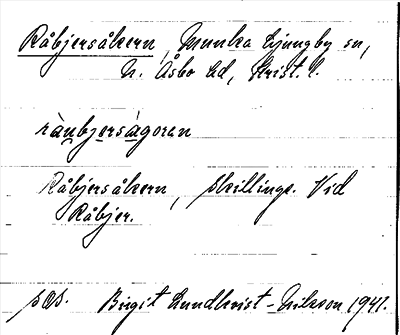 Råbjersåkern, Munka Ljungby sn,
N. Åsbo hd, Krist. l.
ràu̯bjersàgoran
Råbjersåkern, skillings. Vid
Råbjer.
Birgit Lundkvist-Nilsson 1941.